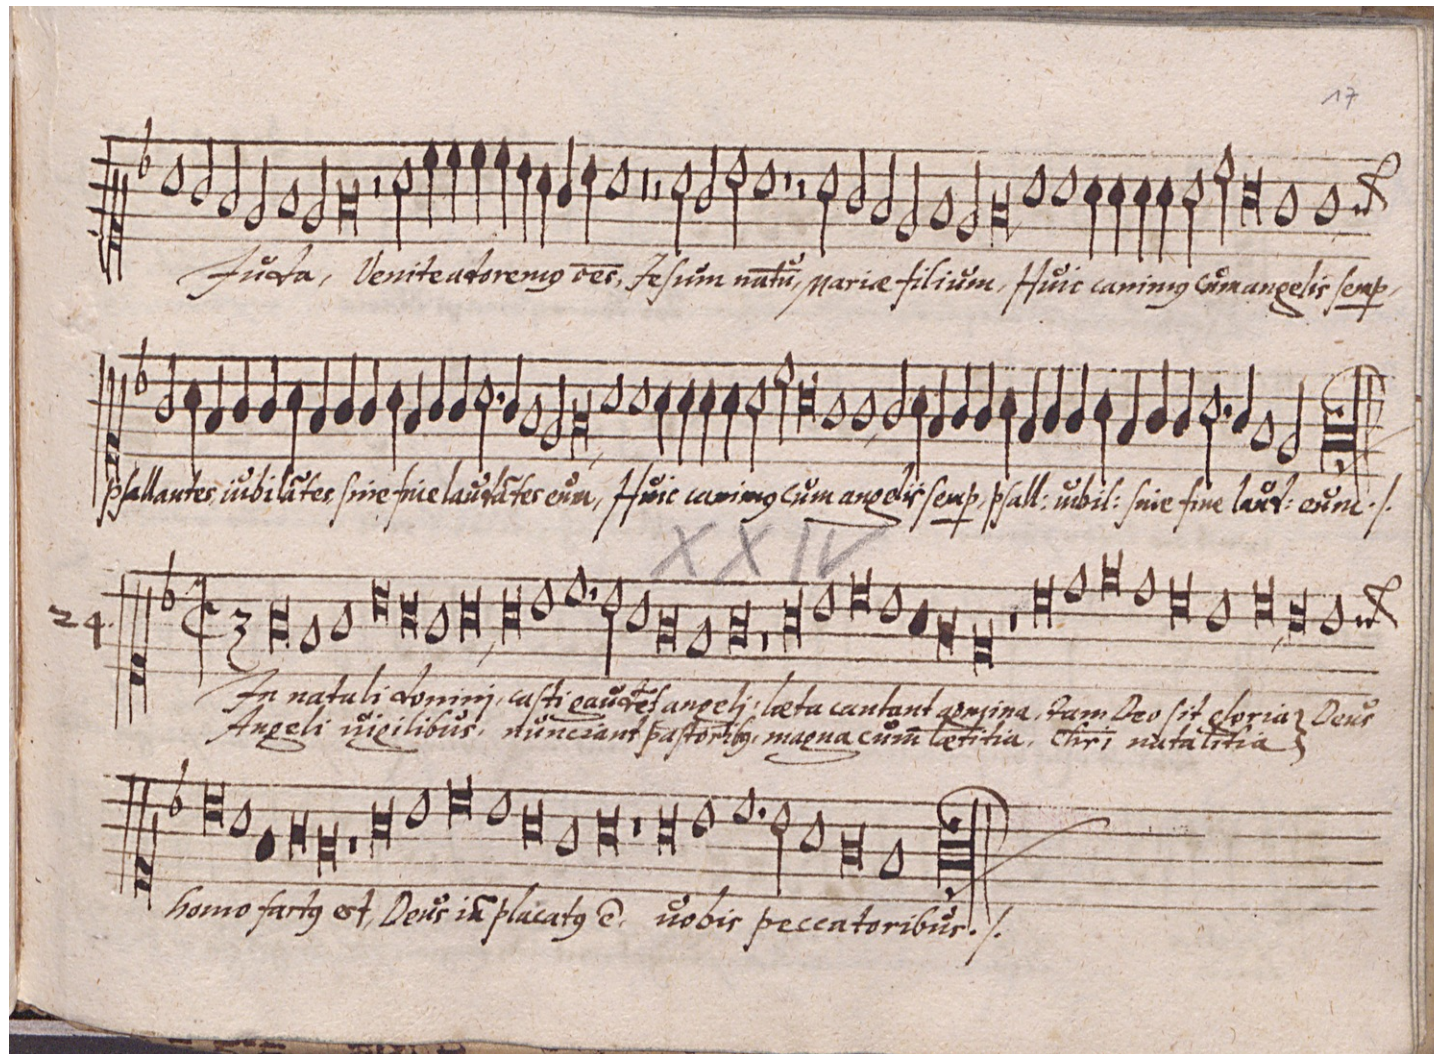 17
Juda, Venite adoremꝰ o̅es, Jesum natu̅, Mariæ filium, Huic canimꝰ Cum angelis semp,
psallantes, iubila̅tes, sine fine lauda̅tes eum, Huic canimꝰ Cum angelis semp, psall: iubil: sine fine laud: eum ./.
XXIV
24.
In natali domini, casti gaude̅t angeli, læta cantant agmina, tam Deo sit gloria } Deus
Angeli uigilibus, nunciant pastoribꝰ, magna cum lætitia, Chri̅ natalitia
homo factꝰ est, Deus placatꝰ e̅, uobis peccatoribus ./.